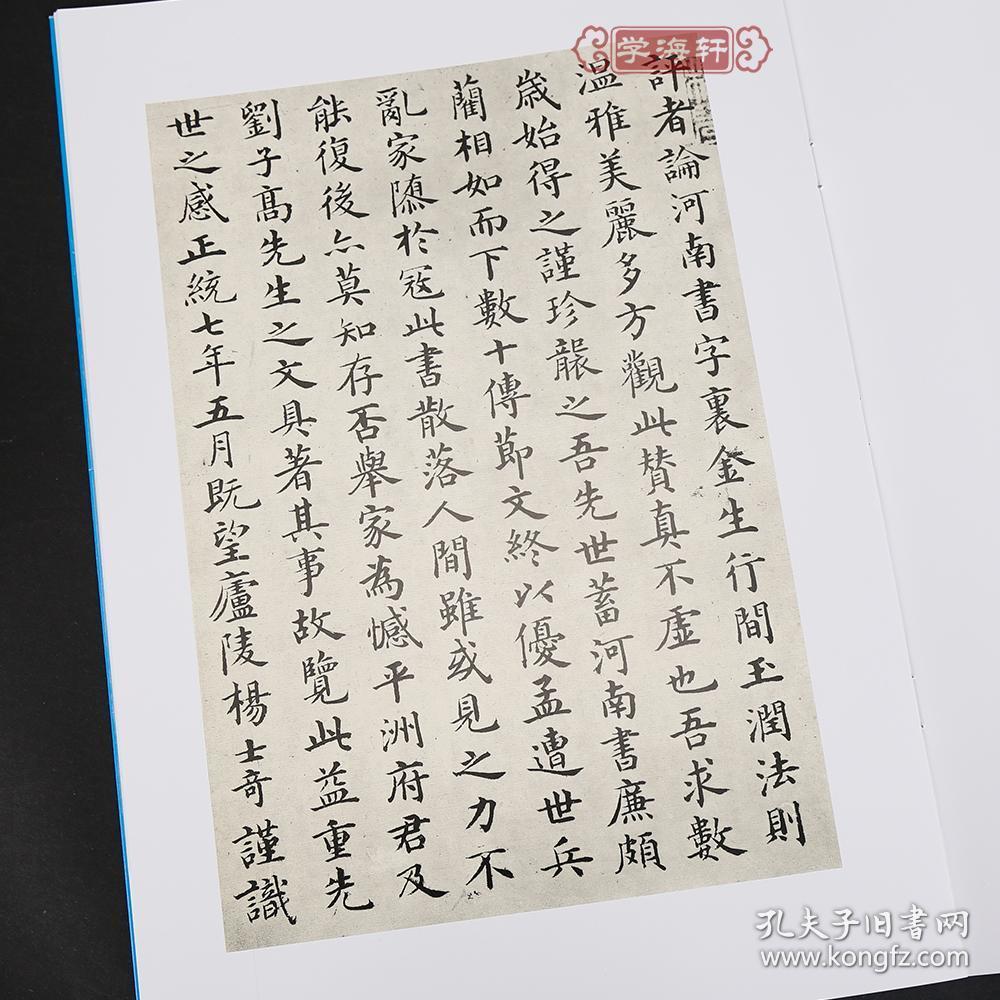 学海轩
評者論河南書字裏金生行間玉潤法則
温雅美麗多方觀此賛真不虛也吾求數
歲始得之謹珍襲之吾先世蓄河南書廉頗
藺相如而下數十傳節文終以優孟遭世兵
亂家隳於冦此書散落人間雖或見之力不
能復後亦莫知存否舉家為憾平洲府君及
劉子髙先生之文具著其事故覽此益重先
世之感正統七年五月旣望廬陵楊士竒謹識
孔夫子旧书网
www.kongfz.com